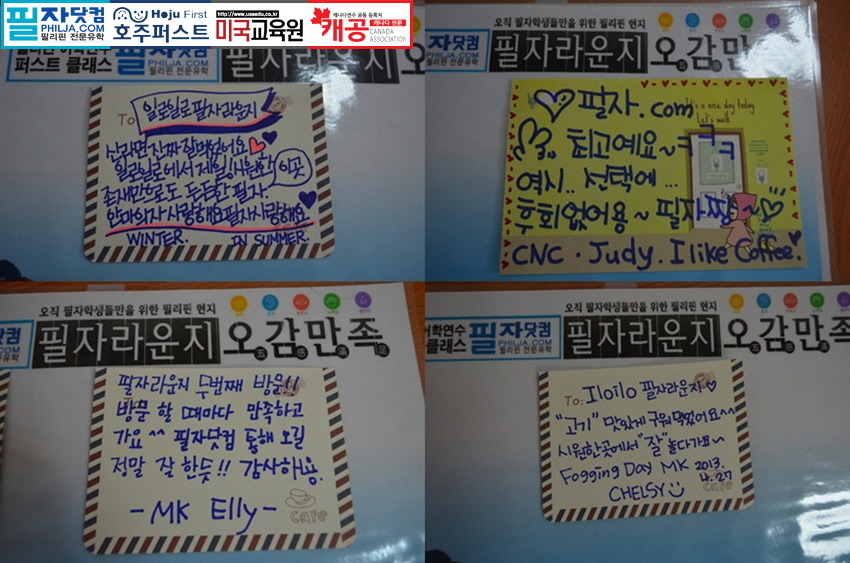 필자닷컴
PHILJA.COM
필리핀 전문유학
Hoju First
호주퍼스트
http://www.usaedu.co.kr
미국교육원
캐나다연수 공동 등록처
캐공
캐나다 전문
CANADA
ASSOCIATION
퍼스트 클래스
필자닷컴
PHILJA.COM
필리핀 전문유학
필자라운지 오
To 일로일로 필자라운지
신라면 진짜 잘 먹었어요
일로일로에서 제일 시원한 이곳
존재만으로도 든든한 필자
안마의자 사랑해요 필자 사랑해요
WINTER. IN SUMMER.
오직 필자학생들만을 위한 필리핀 현지
자닷컴
PHILJA.COM
필리핀 전문유학
필자라운지 오감만족
It's a nice day today
Let's walk
필자.com
최고예요~ㅋㅋㅋ
역시.. 선택에...
후회없어용~ 필자짱~
CNC. Judy. I like Coffee.
오직 필자학생들만을 위한 필리핀 현지
자닷컴
PHILJA.COM
필리핀 전문유학
필자라운지 오감만족
필자라운지 두번째 방문!!
방문 할 때마다 만족하고
가요^^ 필자닷컴 통해 오길
정말 잘 한듯!! 감사해용.
- MK Elly -
cafe
오직 필자학생들만을 위한 필리핀 현지
어학연수
클래스
필자닷컴
PHILJA.COM
필리핀 전문유학
필자라운지 오감만족
To: Iloilo 필자라운지♡
"고기" 맛있게 구워먹었어요^^
시원한곳에서 "잘" 놀다가요~
Fogging Day MK 2013.
4.27
CHELSY
cafe